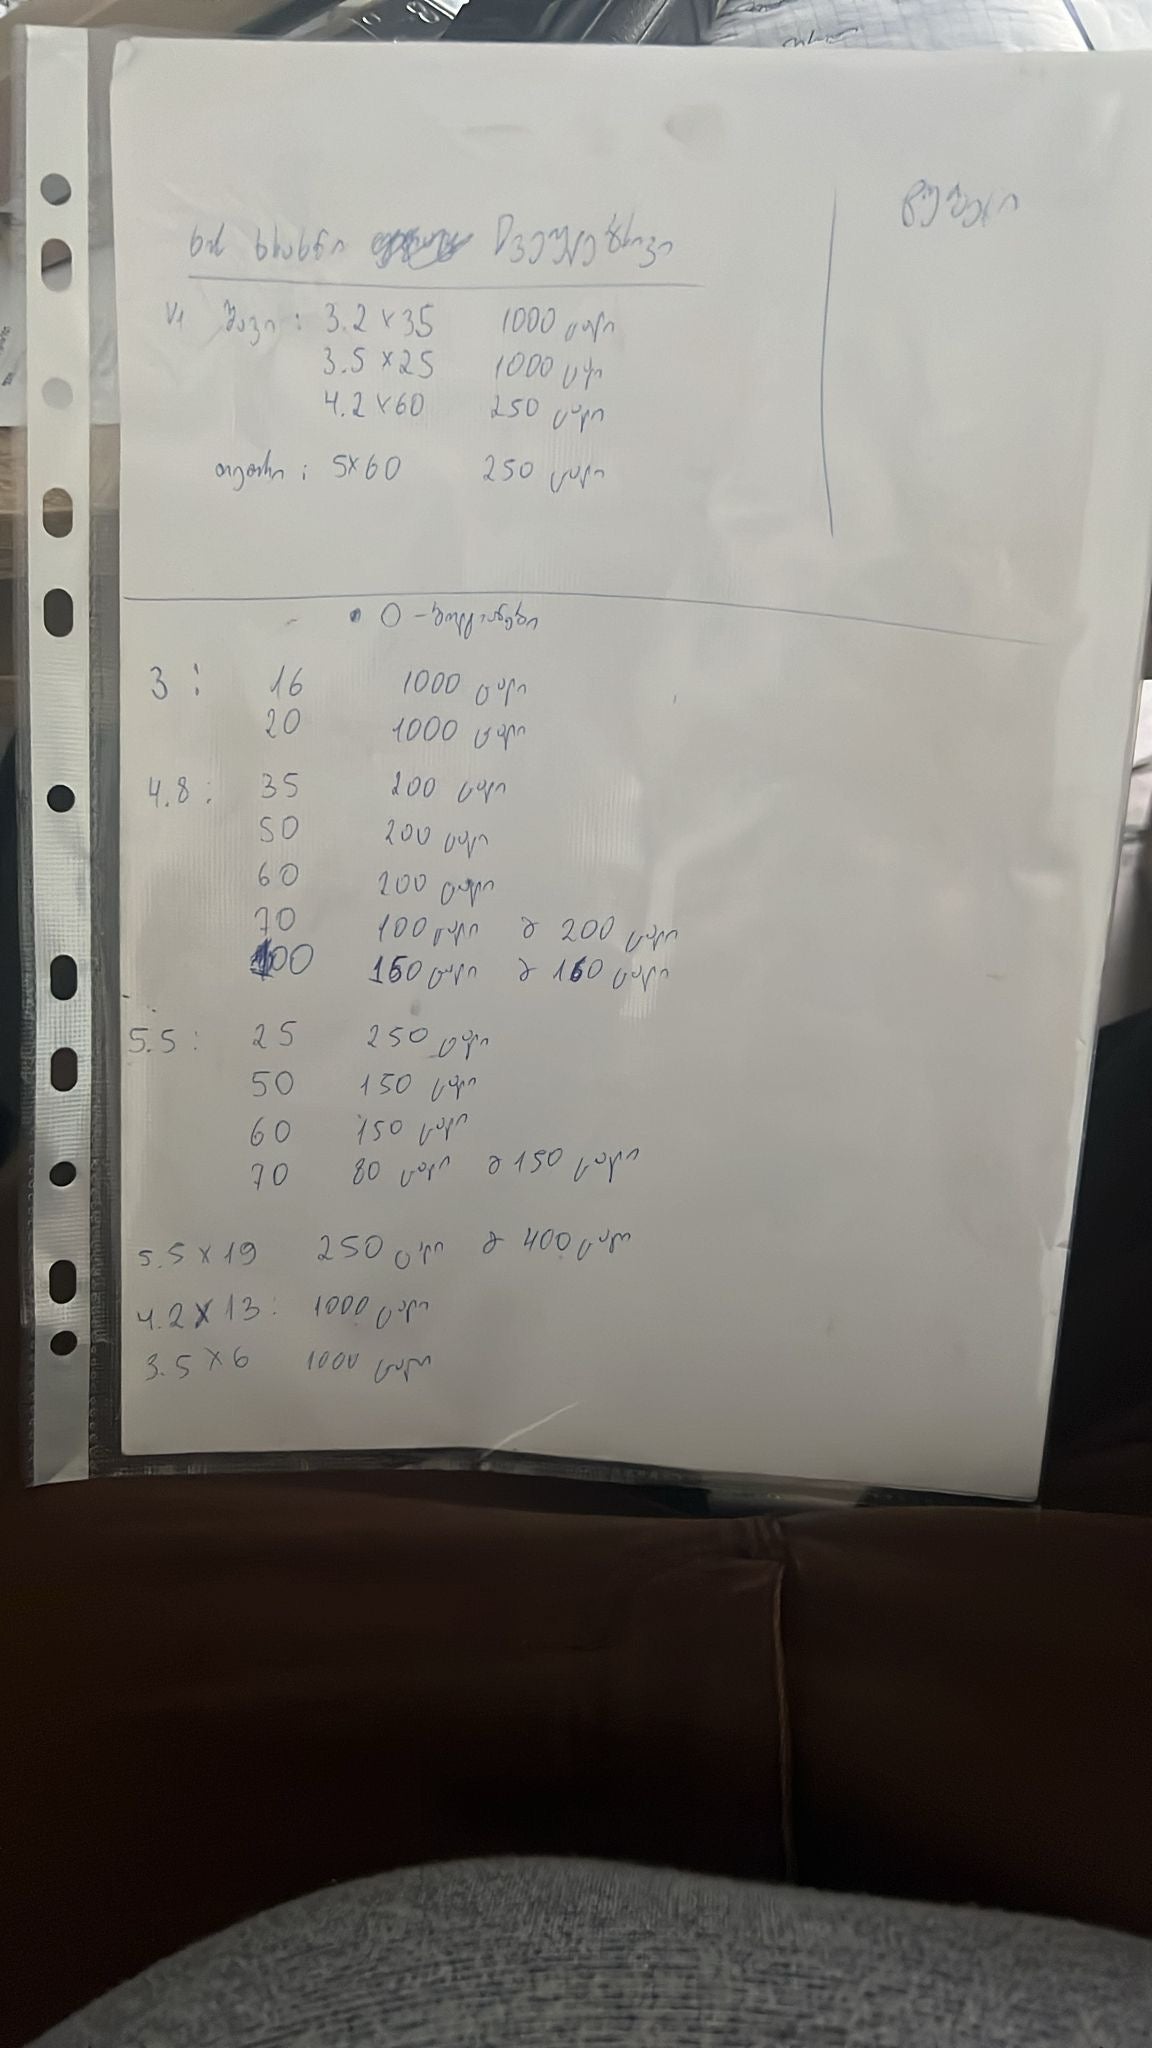 ხის ხრახნი
შავი : 3.2 x 35 1000 ცალი
3.5 x 25 1000 ცალი
4.2 x 60 250 ცალი
თეთრი : 5x60 250 ცალი
3 : 16 1000 ცალი
20 1000 ცალი
4.8 : 35 200 ცალი
50 200 ცალი
60 200 ცალი
70 100 ცალი 200 ცალი
100 150 ცალი 160 ცალი
5.5 : 25 250 ცალი
50 150 ცალი
60 150 ცალი
70 80 ცალი 150 ცალი
5.5 x 19 250 ცალი 400 ცალი
4.2 x 13 : 1000 ცალი
3.5 x 6 1000 ცალი